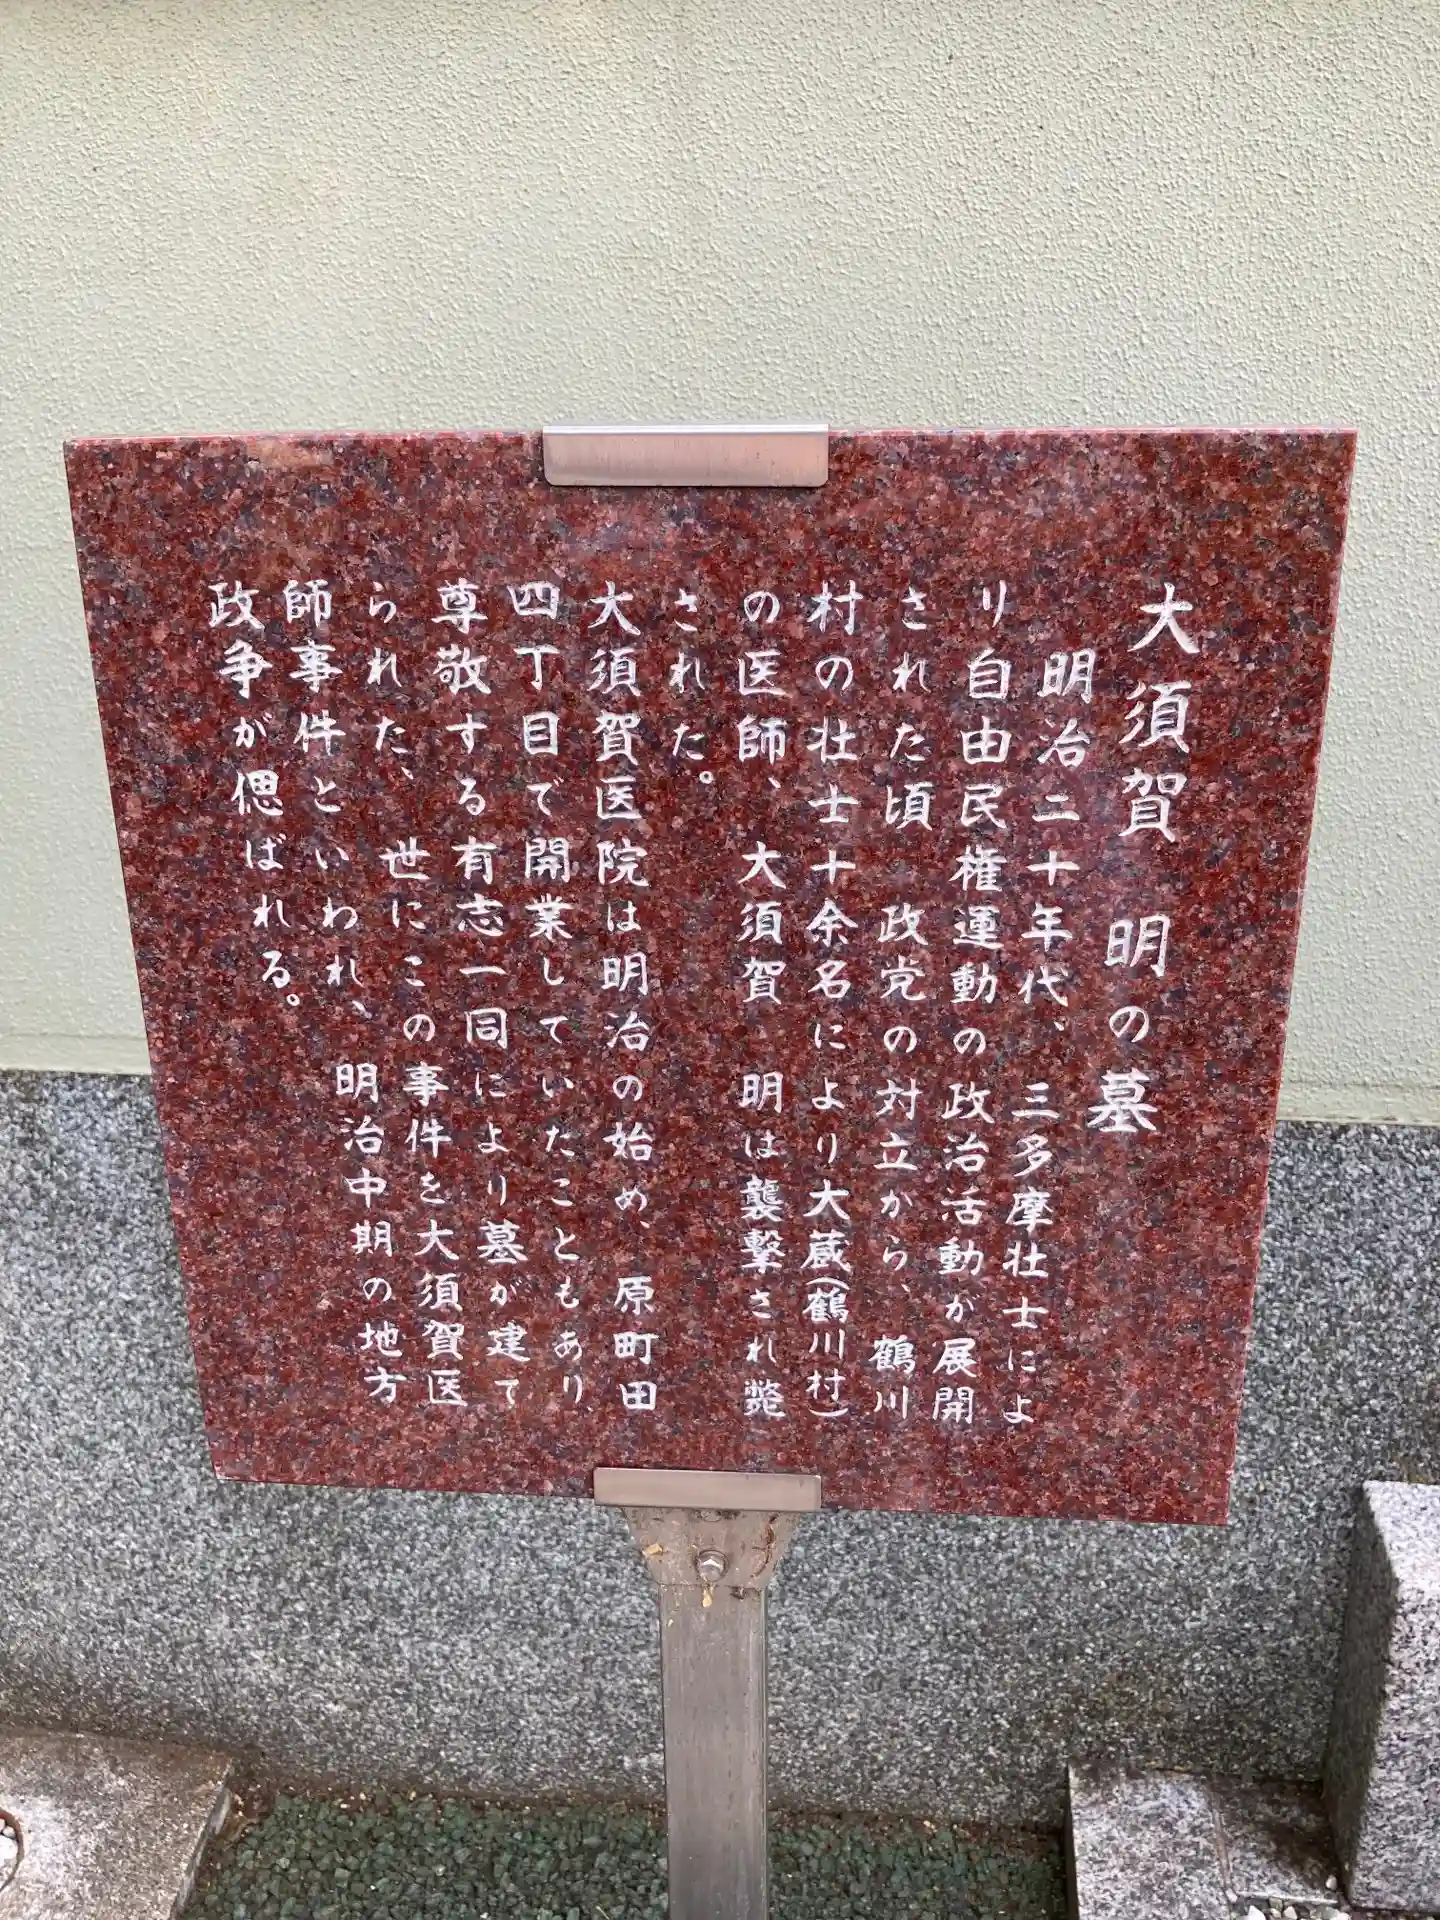 大須賀　明の墓
　明治二十年代、三多摩壮士によ
り自由民権運動の政治活動が展開
された頃　政党の対立から、鶴川
村の壮士十余名により大蔵(鶴川村)
の医師、大須賀　明は襲撃され斃
された。
大須賀医院は明治の始め、原町田
四丁目で開業していたこともあり、
尊敬する有志一同により墓が建て
られた、世にこの事件を大須賀医
師事件といわれ、明治中期の地方
政争が偲ばれる。